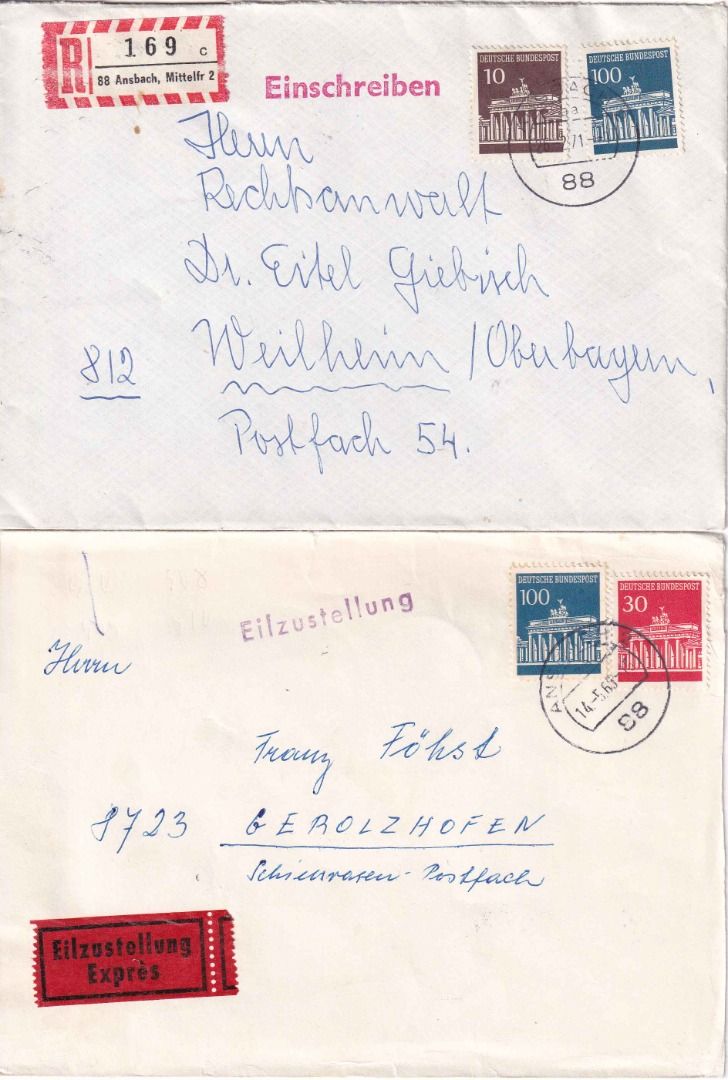 R 169 c
88 Ansbach, Mittelfr 2
Einschreiben
10 DEUTSCHE BUNDESPOST
100 DEUTSCHE BUNDESPOST
88
Herrn
Rechtsanwalt
Dr. Eitel Giebisch
812 Weilheim / Oberbayern,
Postfach 54.
Eilzustellung
DEUTSCHE BUNDESPOST 100
DEUTSCHE BUNDESPOST 30
14.-5.69
88
Herrn
Franz Föhst
8723 GEROLZHOFEN
Postfach
Eilzustellung
Exprès